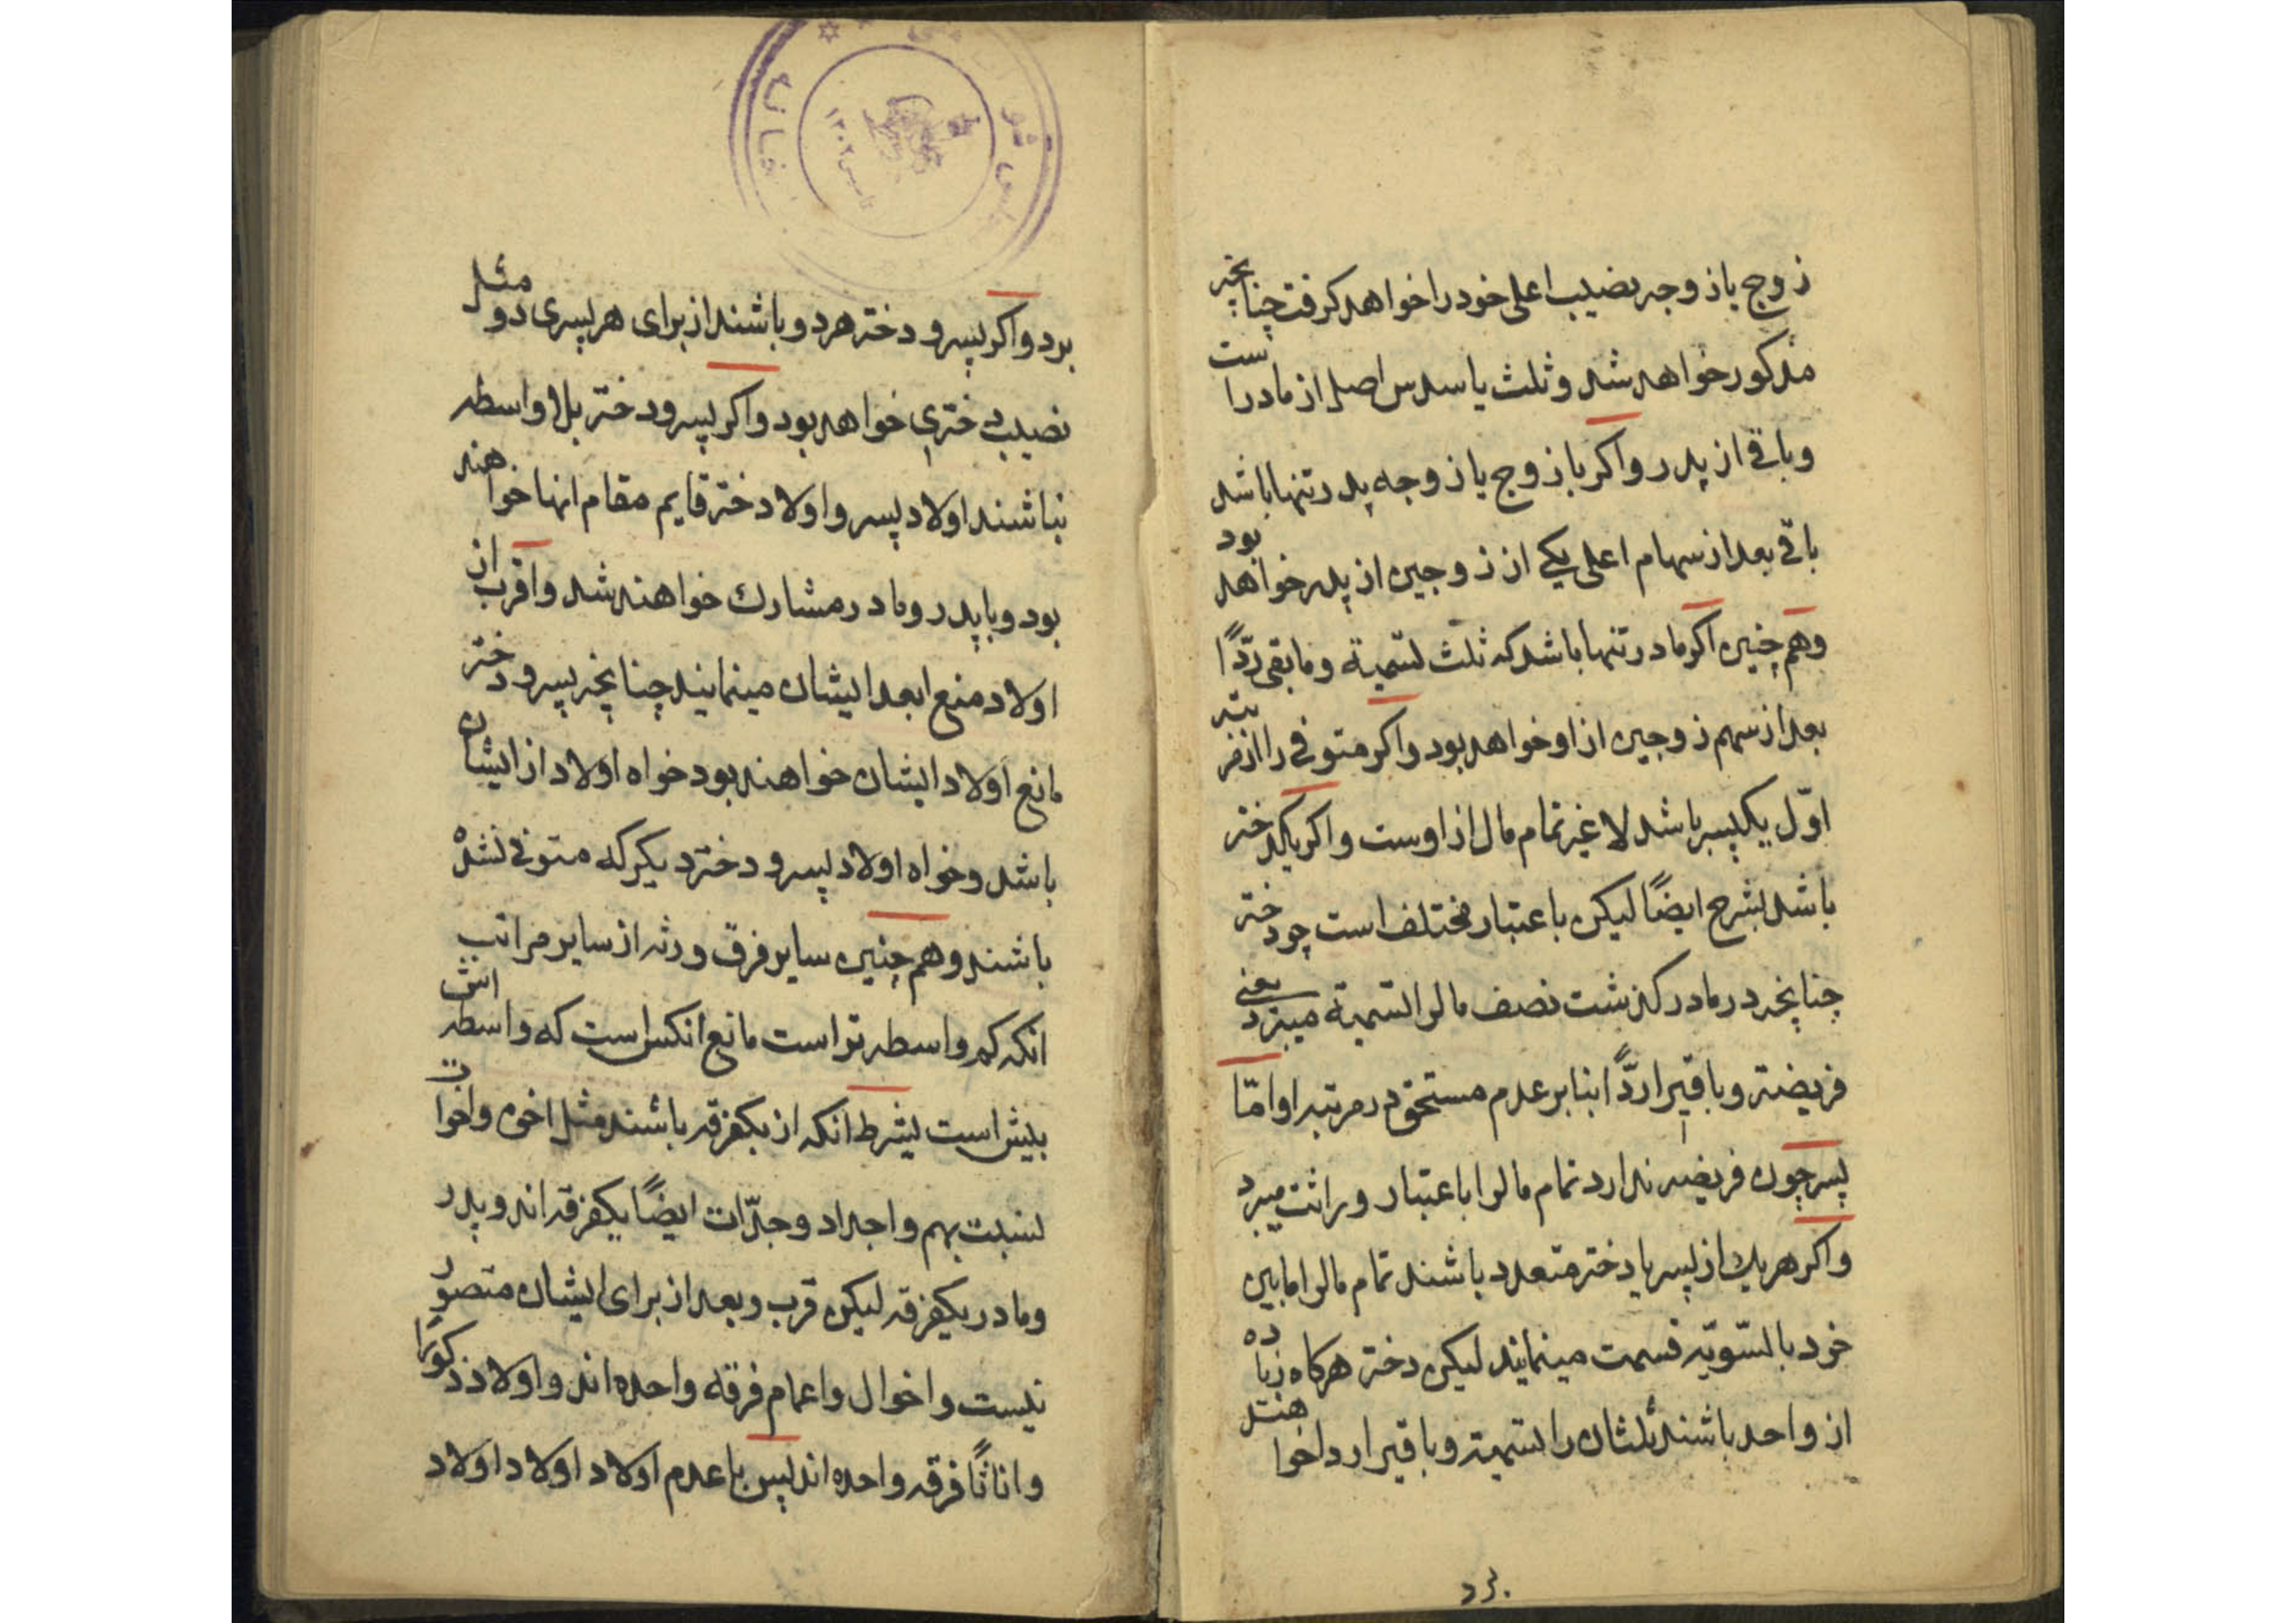 زوج یا زوجه نصیب اعلی خود را خواهد کرفت چنانچه
مذکور خواهد شد و ثلث یا سدس اصل از مادر است
و باقی از پدر و اکر با زوج یا زوجه پدر تنها باشد
باقی بعد از سهام اعلی یکی از زوجین از پدر خواهد بود
و هم چنین اکر مادر تنها باشد که ثلث تسمیة و ما بقی ردًّا
بعد از سهم زوجین از او خواهد بود و اکر متوفی را از مرتبه
اوّل یک پسر باشد لا غیر تمام مال از اوست و اکر یکدختر
باشد بشرح ایضًا لیکن باعتبار مختلف است چو دختر
چنانچه در مادر کذشت نصف مالرا تسمیة میبرد یعنی
فریضته و باقیرا ردًّا بنابر عدم مستحق در مرتبه او امّا
پسر چون فریضه ندارد تمام مالرا باعتبار وراثت میبرد
و اکر هر یك از پسر یا دختر متعدد باشند تمام مالرا مابین
خود بالسّویّه قسمت مینمایند لیکن دختر هرکاه زیاده
از واحد باشند ثلثان را تسمیته و باقیرا ردا خواهند
برد
برد و اکر پسر و دختر هر دو باشند از برای هر پسری دو مثل
نصیب دختری خواهد بود و اکر پسر و دختر بلا واسطه
نباشند اولاد پسر و اولاد دختر قایم مقام انها خواهند
بود و با پدر و مادر مشارك خواهند شد و اقرب از
اولاد منع ابعد ایشان مینمایند چنانچه پسر و دختر
مانع اولاد ایشان خواهند بود خواه اولاد از ایشان
باشد و خواه اولاد پسر و دختر دیکر که متوفی شده
باشند و هم چنین سایر فرق ورثه از سایر مراتب
انکه کم واسطه تر است مانع انکس است که واسطه اش
بیش است بشرط انکه از یکفرقه باشند مثل اخوه و اخوات
نسبت بهم و اجداد و جدّات ایضًا یکفرقه اند و پدر
و مادر یکفرقه لیکن قرب و بعد از برای ایشان متصور
نیست و اخوال و اعمام فرقه واحده اند و اولاد ذکورًا
و اناثًا فرقه واحده اند پس با عدم اولاد اولاد اولاد